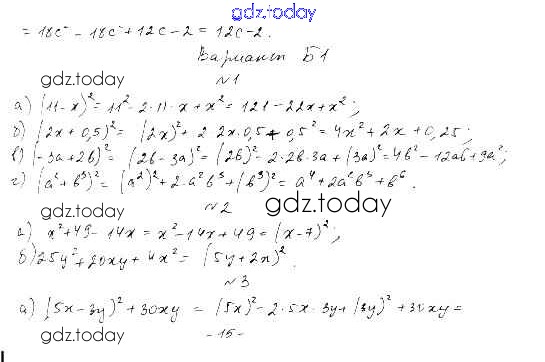 gdz.today
= 18c² - 18c² + 12c - 2 = 12c - 2.
Вариант Б1
gdz.today
№1
а) (11 - x)² = 11² - 2·11·x + x² = 121 - 22x + x²;
б) (2x + 0,5)² = (2x)² + 2·2x·0,5 + 0,5² = 4x² + 2x + 0,25;
в) (-3a + 2b)² = (2b - 3a)² = (2b)² - 2·2b·3a + (3a)² = 4b² - 12ab + 9a²;
г) (a² + b³)² = (a²)² + 2·a²b³ + (b³)² = a⁴ + 2a²b³ + b⁶.
gdz.today
№2
gdz.today
а) x² + 49 - 14x = x² - 14x + 49 = (x - 7)²;
б) 25y² + 20xy + 4x² = (5y + 2x)².
№3
а) (5x - 3y)² + 30xy = (5x)² - 2·5x·3y + (3y)² + 30xy =
gdz.today
- 15 -